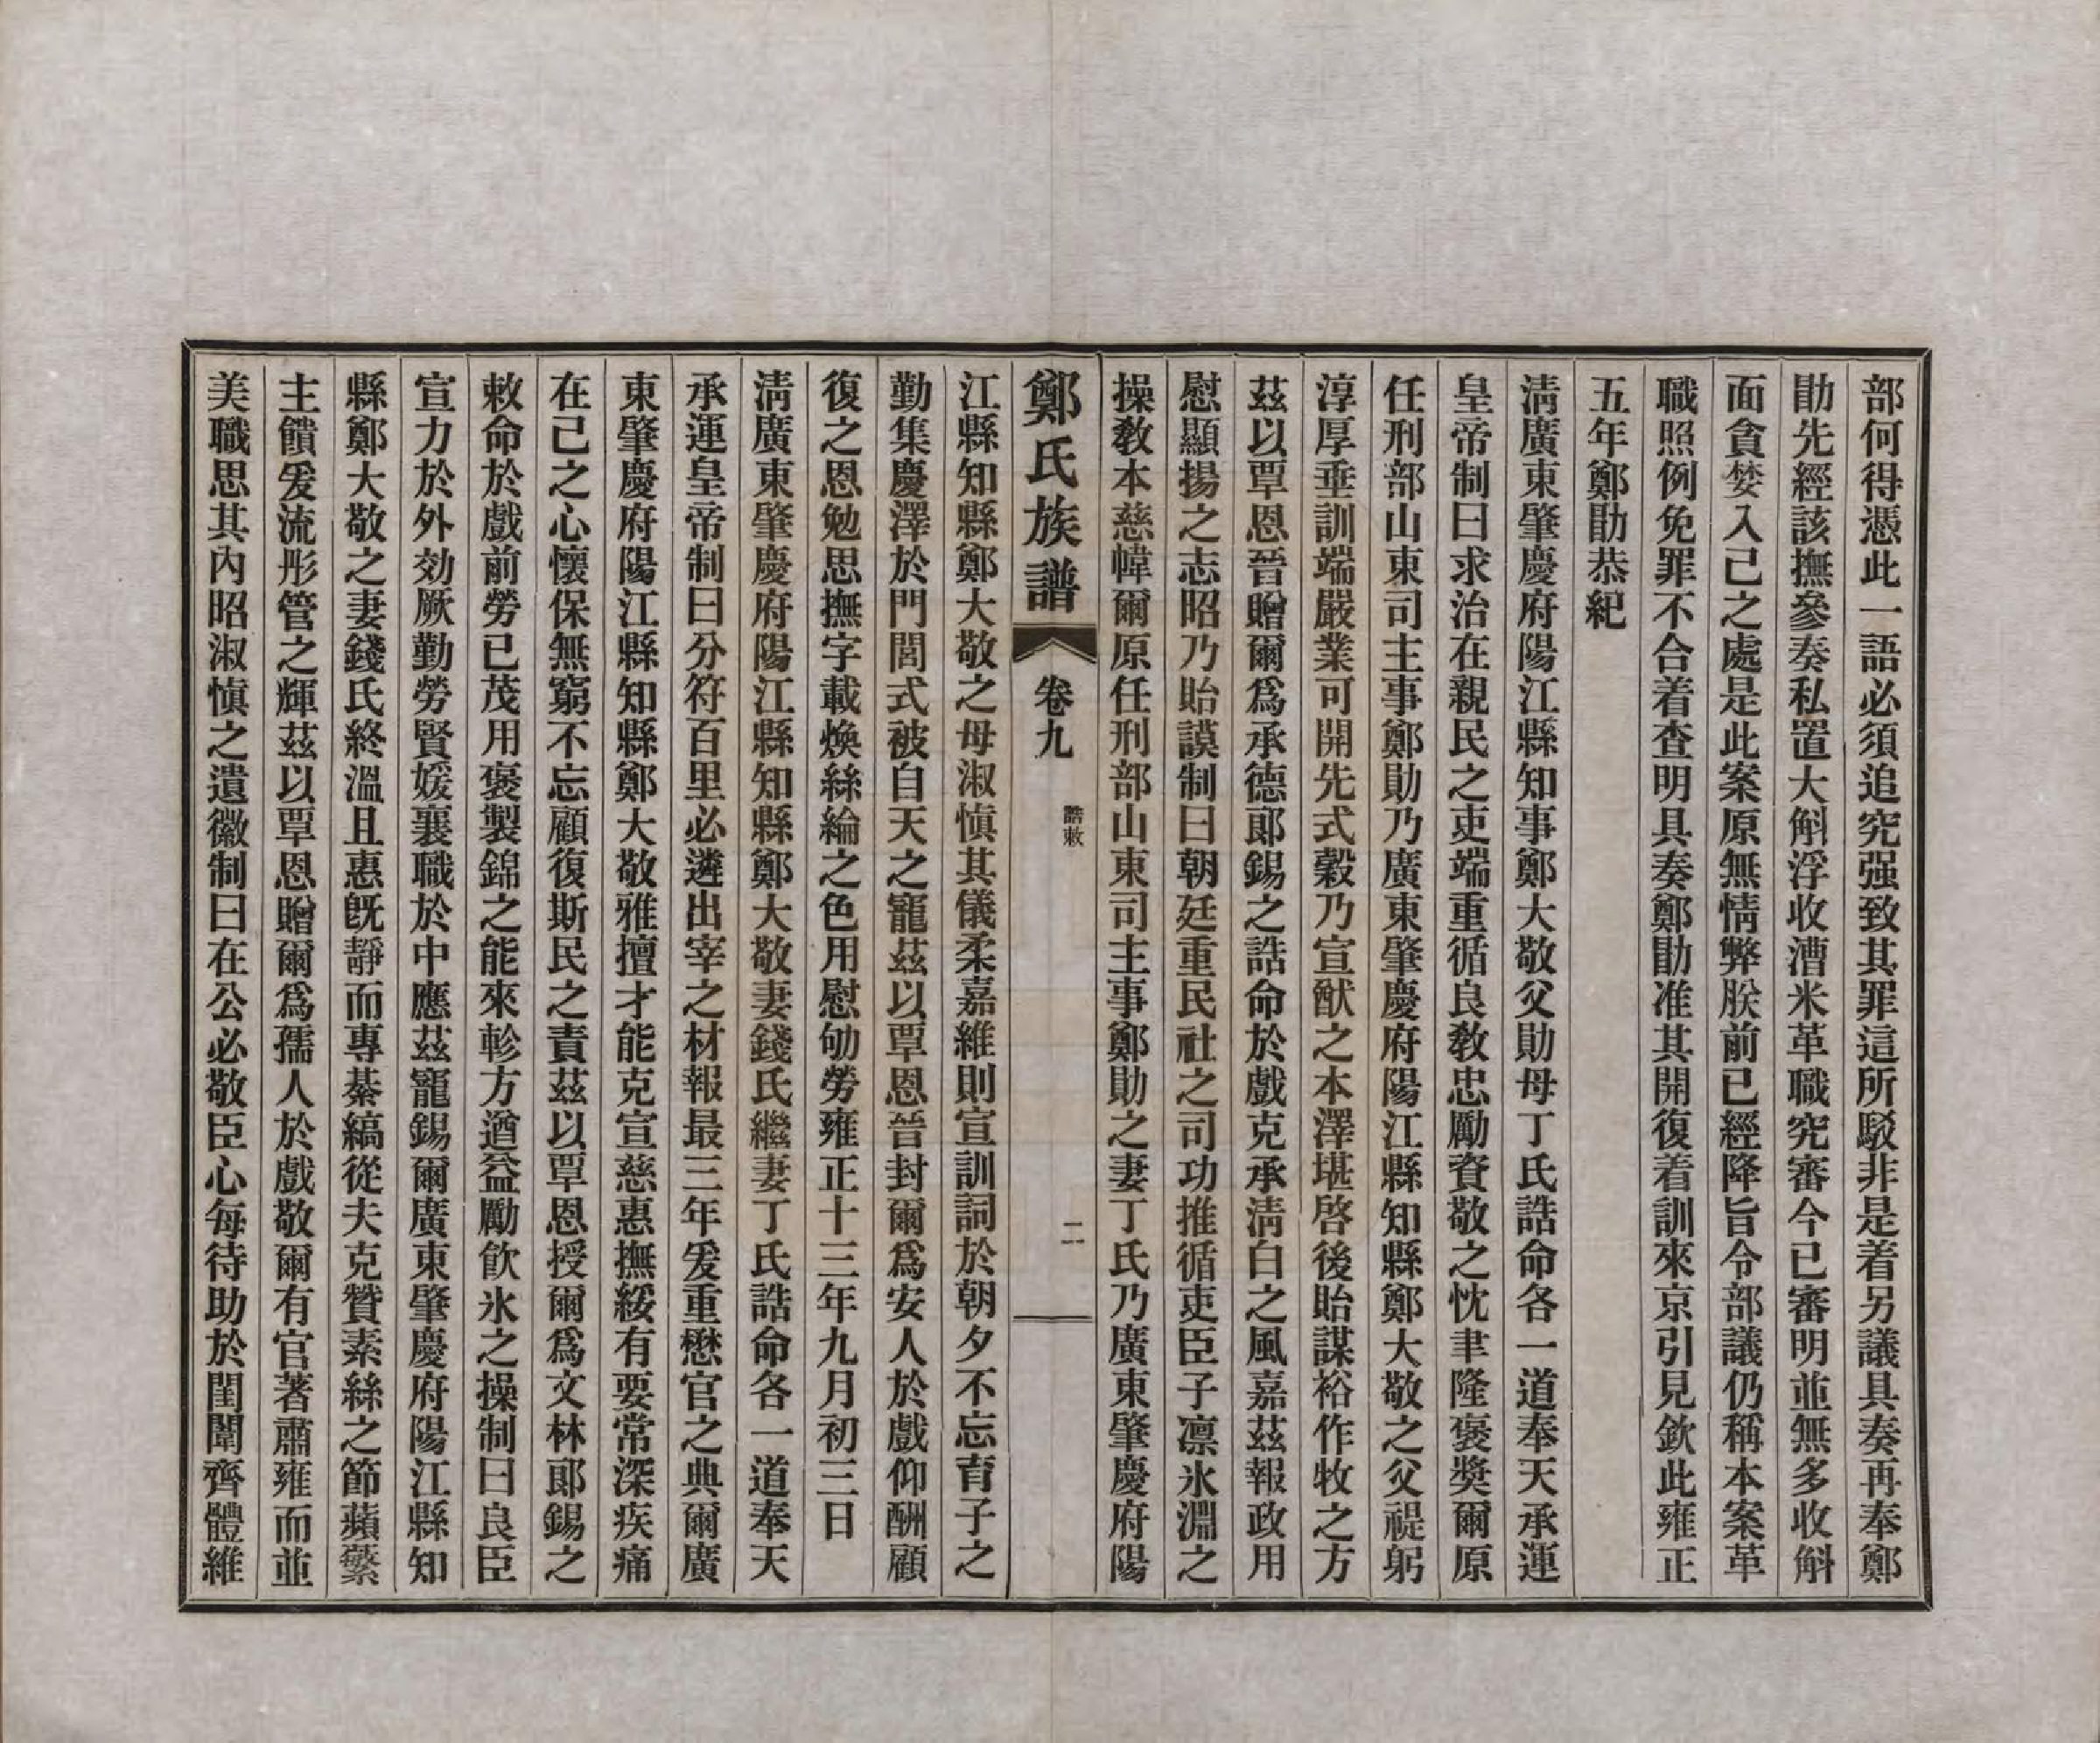 部何得憑此一語必須追究强致其罪這所駁非是着另議具奏再奉鄭
勛先經該撫參奏私置大斛浮收漕米革職究審今已審明並無多收斛
面貪婪入己之處是此案原無情弊朕前已經降旨令部議仍稱本案革
職照例免罪不合着查明具奏鄭勛准其開復着訓來京引見欽此雍正
五年鄭勛恭紀
清廣東肇慶府陽江縣知事鄭大敬父勛母丁氏誥命各一道奉天承運
皇帝制曰求治在親民之吏端重循良教忠勵資敬之忱聿隆褒獎爾原
任刑部山東司主事鄭勛乃廣東肇慶府陽江縣知縣鄭大敬之父禔躬
淳厚垂訓端嚴業可開先式穀乃宣猷之本澤堪啓後貽謀裕作牧之方
茲以覃恩晉贈爾爲承德郎錫之誥命於戲克承清白之風嘉茲報政用
慰顯揚之志昭乃貽謨制曰朝廷重民社之司功推循吏臣子凛氷淵之
操教本慈幃爾原任刑部山東司主事鄭勛之妻丁氏乃廣東肇慶府陽
鄭氏族譜 卷九 誥敕 二
江縣知縣鄭大敬之母淑愼其儀柔嘉維則宣訓詞於朝夕不忘育子之
勤集慶澤於門閭式被自天之寵茲以覃恩晉封爾爲安人於戲仰酬顧
復之恩勉思撫字載煥絲綸之色用慰劬勞雍正十三年九月初三日
清廣東肇慶府陽江縣知縣鄭大敬妻錢氏繼妻丁氏誥命各一道奉天
承運皇帝制曰分符百里必遴出宰之材報最三年爰重懋官之典爾廣
東肇慶府陽江縣知縣鄭大敬雅擅才能克宣慈惠撫綏有要常深疾痛
在己之心懷保無窮不忘顧復斯民之責茲以覃恩授爾爲文林郎錫之
敕命於戲前勞已茂用褒製錦之能來軫方遒益勵飮氷之操制曰良臣
宣力於外効厥勤勞賢媛襄職於中應茲寵錫爾廣東肇慶府陽江縣知
縣鄭大敬之妻錢氏終溫且惠旣靜而專綦縞從夫克贊素絲之節蘋蘩
主饋爰流彤管之輝茲以覃恩贈爾爲孺人於戲敬爾有官著肅雍而並
美職思其內昭淑愼之遺徽制曰在公必敬臣心每待助於閨闈齊體維